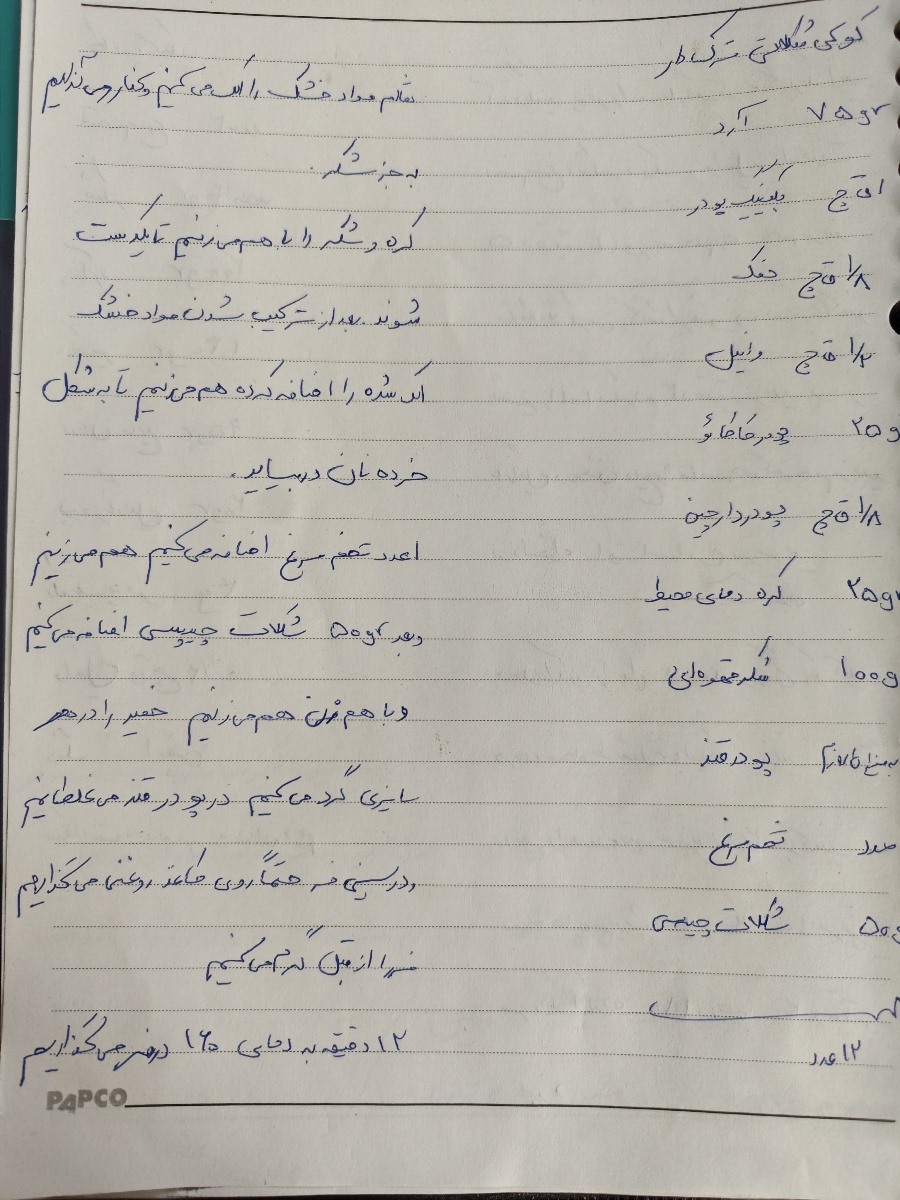 کوکی شکلاتی ترک دار
75gr آرد
1 ق چ بکینگ پودر
1/8 ق چ نمک
1/2 ق چ وانیل
25g پودر کاکائو
1/8 ق چ پودر دارچین
25gr کره دمای محیط
100g شکر قهوه‌ای
به میزان لازم پودر قند
عدد تخم مرغ
50g شکلات چیپسی
12 عدد
تمام مواد خشک را الک می کنیم و کنار می گذاریم
به جز شکر.
کره و شکر را با هم می زنیم تا یکدست
شوند. بعد از ترکیب شدن مواد خشک
الک شده را اضافه کرده هم می زنیم تا به شکل
خرده نان در بیاید.
1 عدد تخم مرغ اضافه می کنیم هم می زنیم
و بعد 50gr شکلات چیپسی اضافه می کنیم
و با هم زن هم می زنیم خمیر را در هر
سایزی گرد می کنیم در پودر قند می غلطانیم
و در سینی فر حتماً روی کاغذ روغنی می گذاریم
فر را از قبل گرم می کنیم
12 دقیقه به دمای 160 در فر می گذاریم
PAPCO